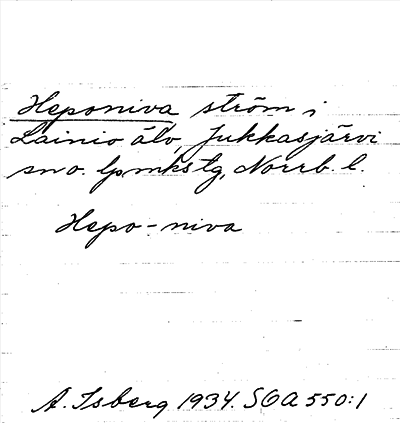 Heponiva ström i
Lainio älv, Jukkasjärvi
sn o. lpmkstg, Norrb. l.
Hepo-niva
A. Isberg 1934. SOA 550:1